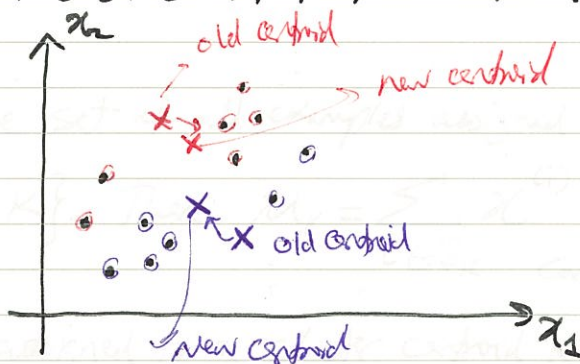 x₂
old centroid
new centroid
old centroid
new centroid
x₁